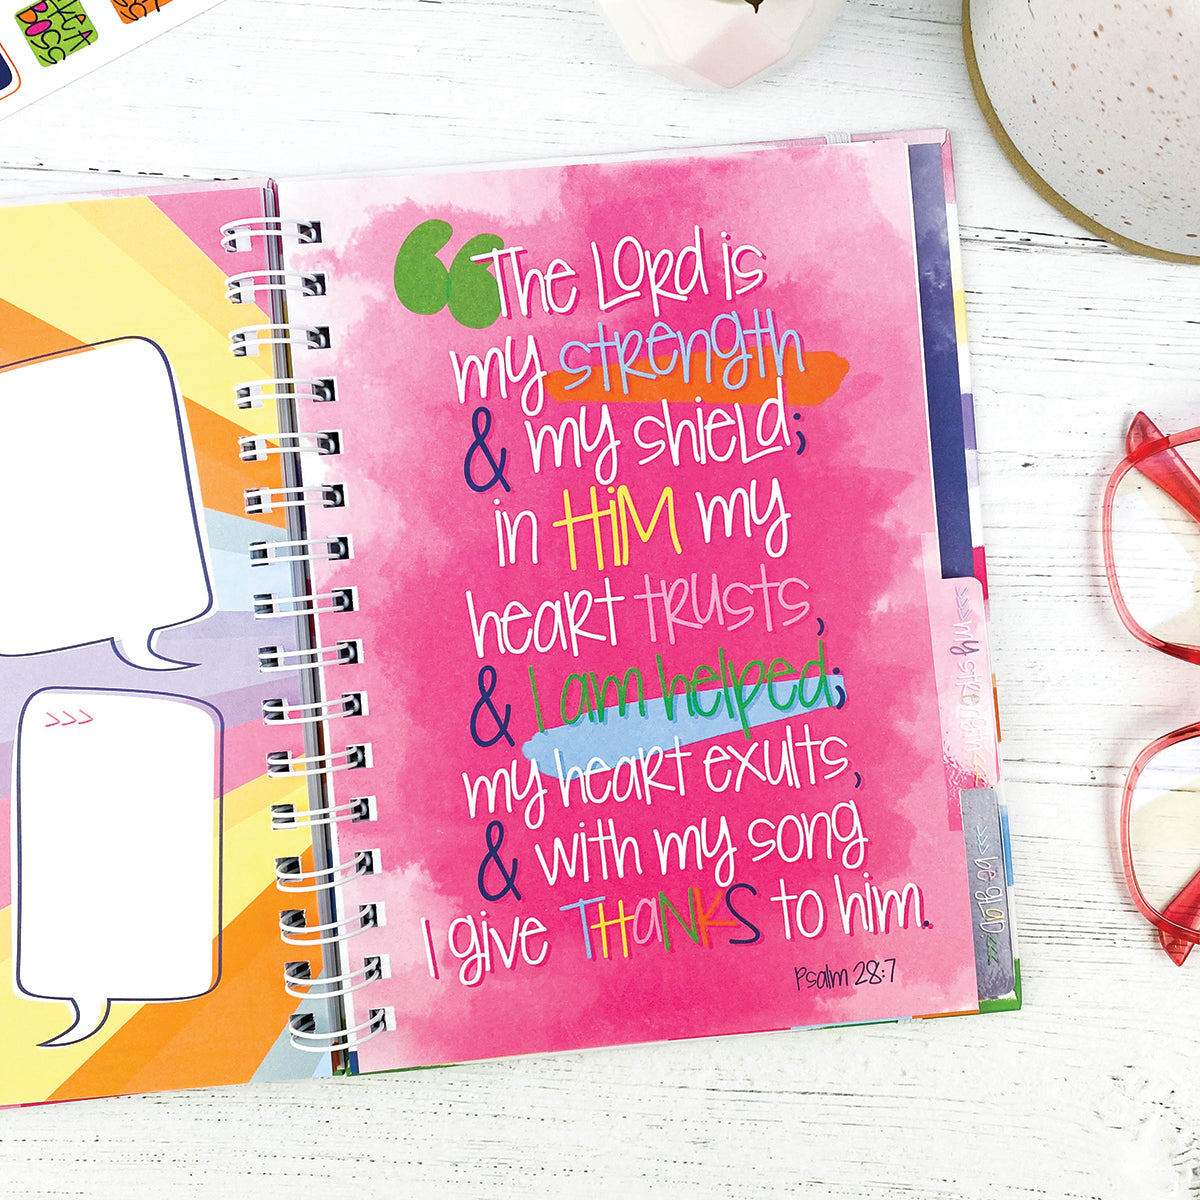 “The Lord is
my strength
& my shield;
in HiM my
heart trusts,
& I am helped;
my heart exults,
& with my song
I give THaNKS to him.
Psalm 28:7
>>>
<<<my strength<<<
>>>be glad<<<
BOSS